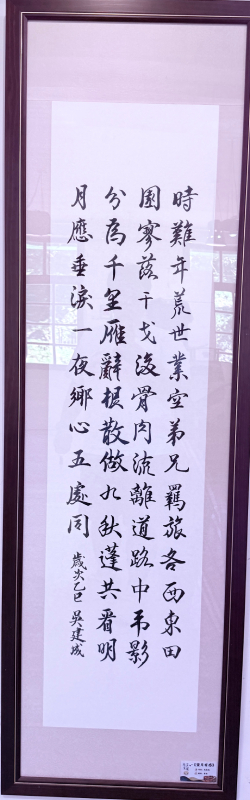 時難年荒世業空弟兄羈旅各西東田
園寥落干戈後骨肉流離道路中弔影
分為千里雁辭根散做九秋蓬共看明
月應垂淚一夜鄉心五處同
歲次乙巳 吳建成